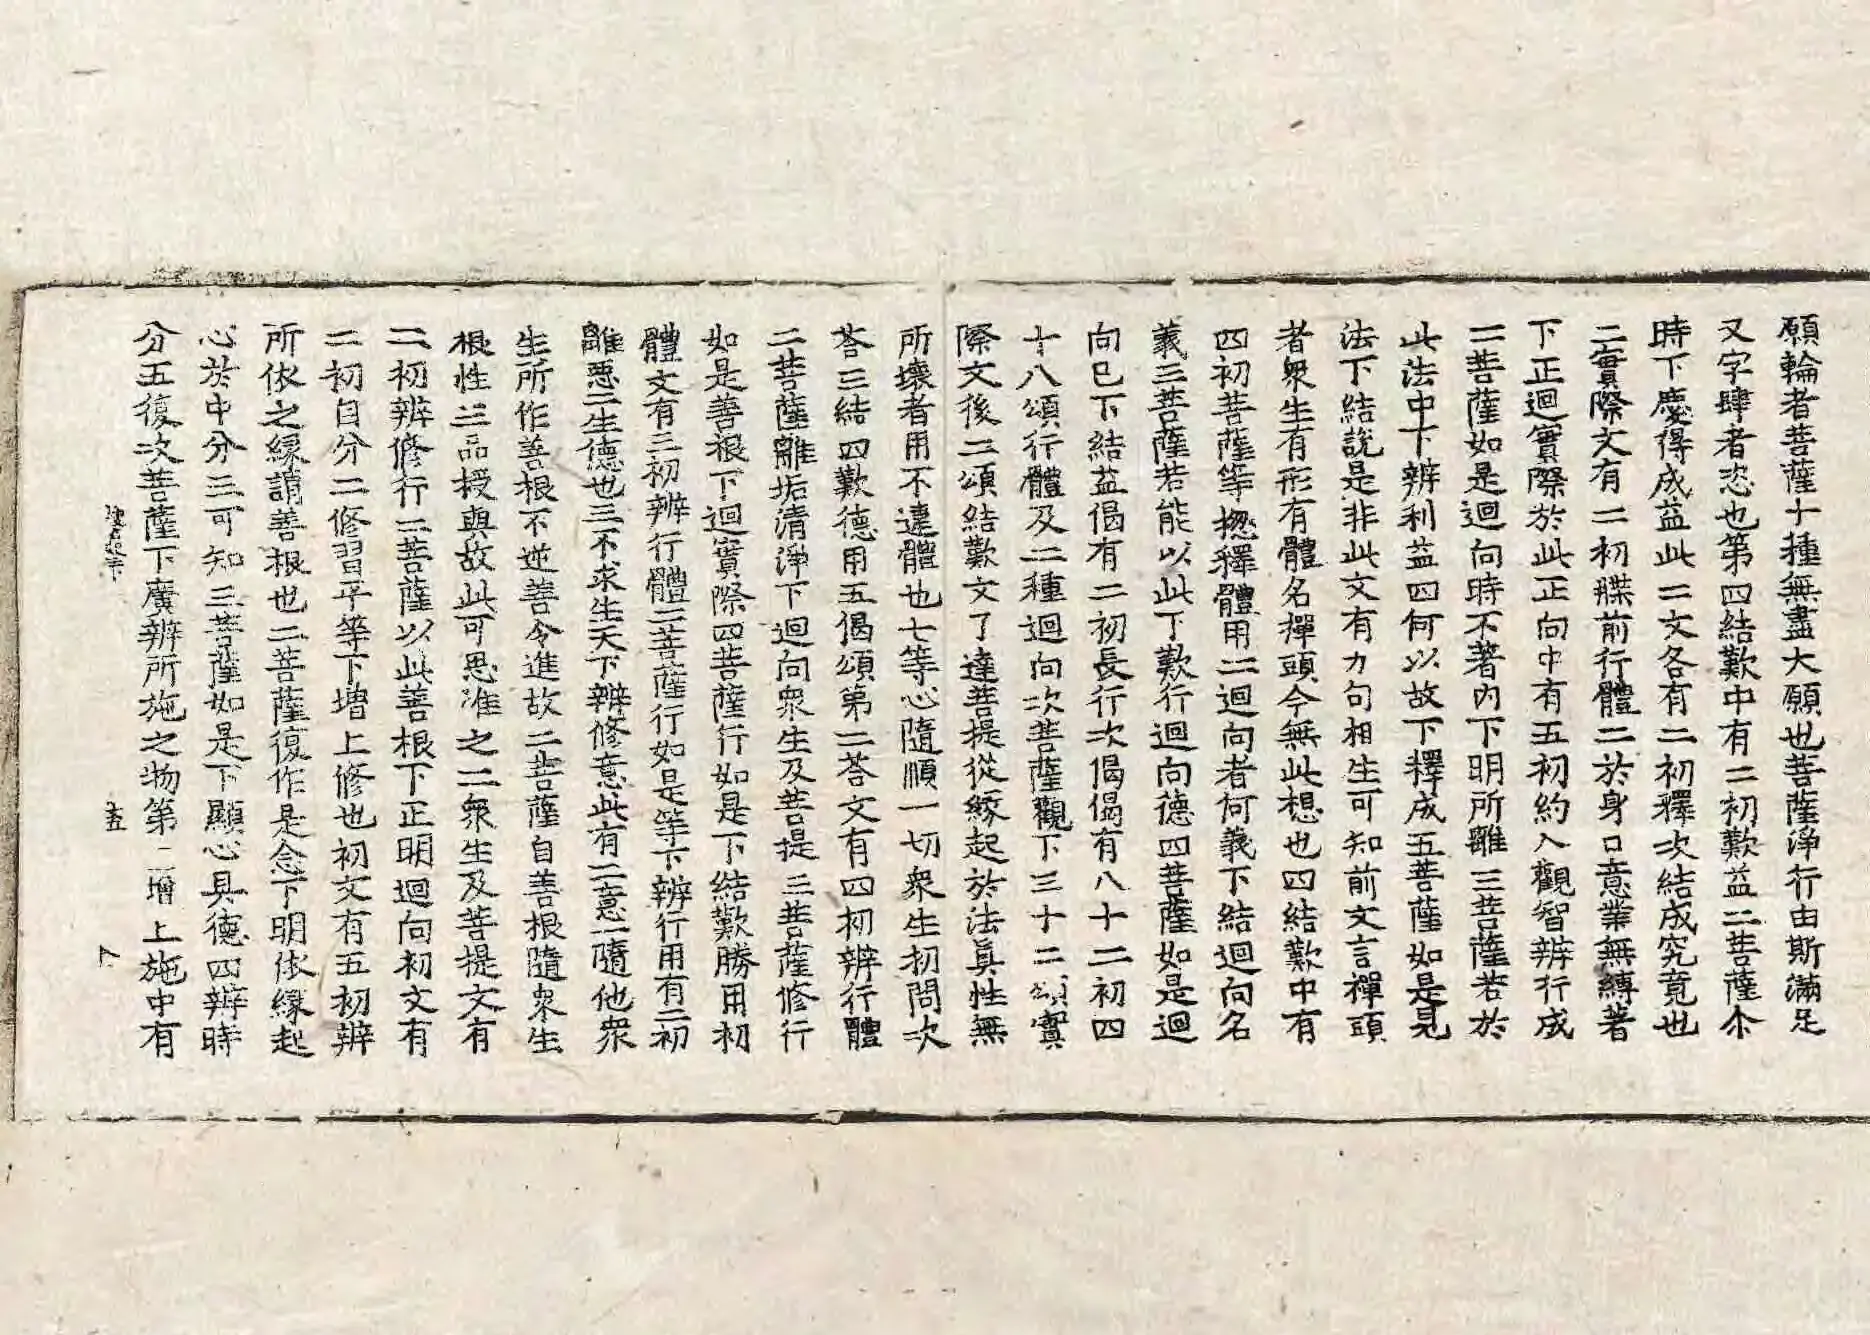 願輪者菩薩十種無盡大願也菩薩淨行由斯滿足
又字肆者恣也第四結歎中有二初歎益二菩薩尒
時下慶得成益此二文各有二初釋次結成究竟也
二實際文有二初牒前行體二於身口意業無縛著
下正迴實際於此正向中有五初約入觀智辨行成
二菩薩如是迴向時不著內下明所離三菩薩若於
此法中下辨利益四何以故下釋成五菩薩如是見
法下結說是非此文有力句相生可知前文言禪頭
者衆生有形有體名禪頭今無此想也四結歎中有
四初菩薩等揔釋體用二迴向者何義下結迴向名
義三菩薩若能以此下歎行迴向德四菩薩如是迴
向已下結益偈有二初長行次偈偈有八十二初四
十八頌行體及二種迴向次菩薩觀下三十二頌實
際文後二頌結歎文了達菩提從緣起於法真性無
所壞者用不違體也七等心隨順一切衆生初問次
荅三結四歎德用五偈頌第二荅文有四初辨行體
二菩薩離垢清淨下迴向衆生及菩提三菩薩修行
如是善根下迴實際四菩薩行如是下結歎勝用初
體文有三初辨行體二菩薩行如是等下辨行用有二初
離惡二生德也三不求生天下辨修意此有二意一隨他衆
生所作善根不逆善令進故二菩薩自善根隨衆生
根性三品授與故此可思准之二衆生及菩提文有
二初辨修行二菩薩以此善根下正明迴向初文有
二初自分二修習平等下增上修也初文有五初辨
所依之緣謂善根也二菩薩復作是念下明依緣起
心於中分三可知三菩薩如是下顯心具德四辨時
分五復次菩薩下廣辨所施之物第二增上施中有
十五